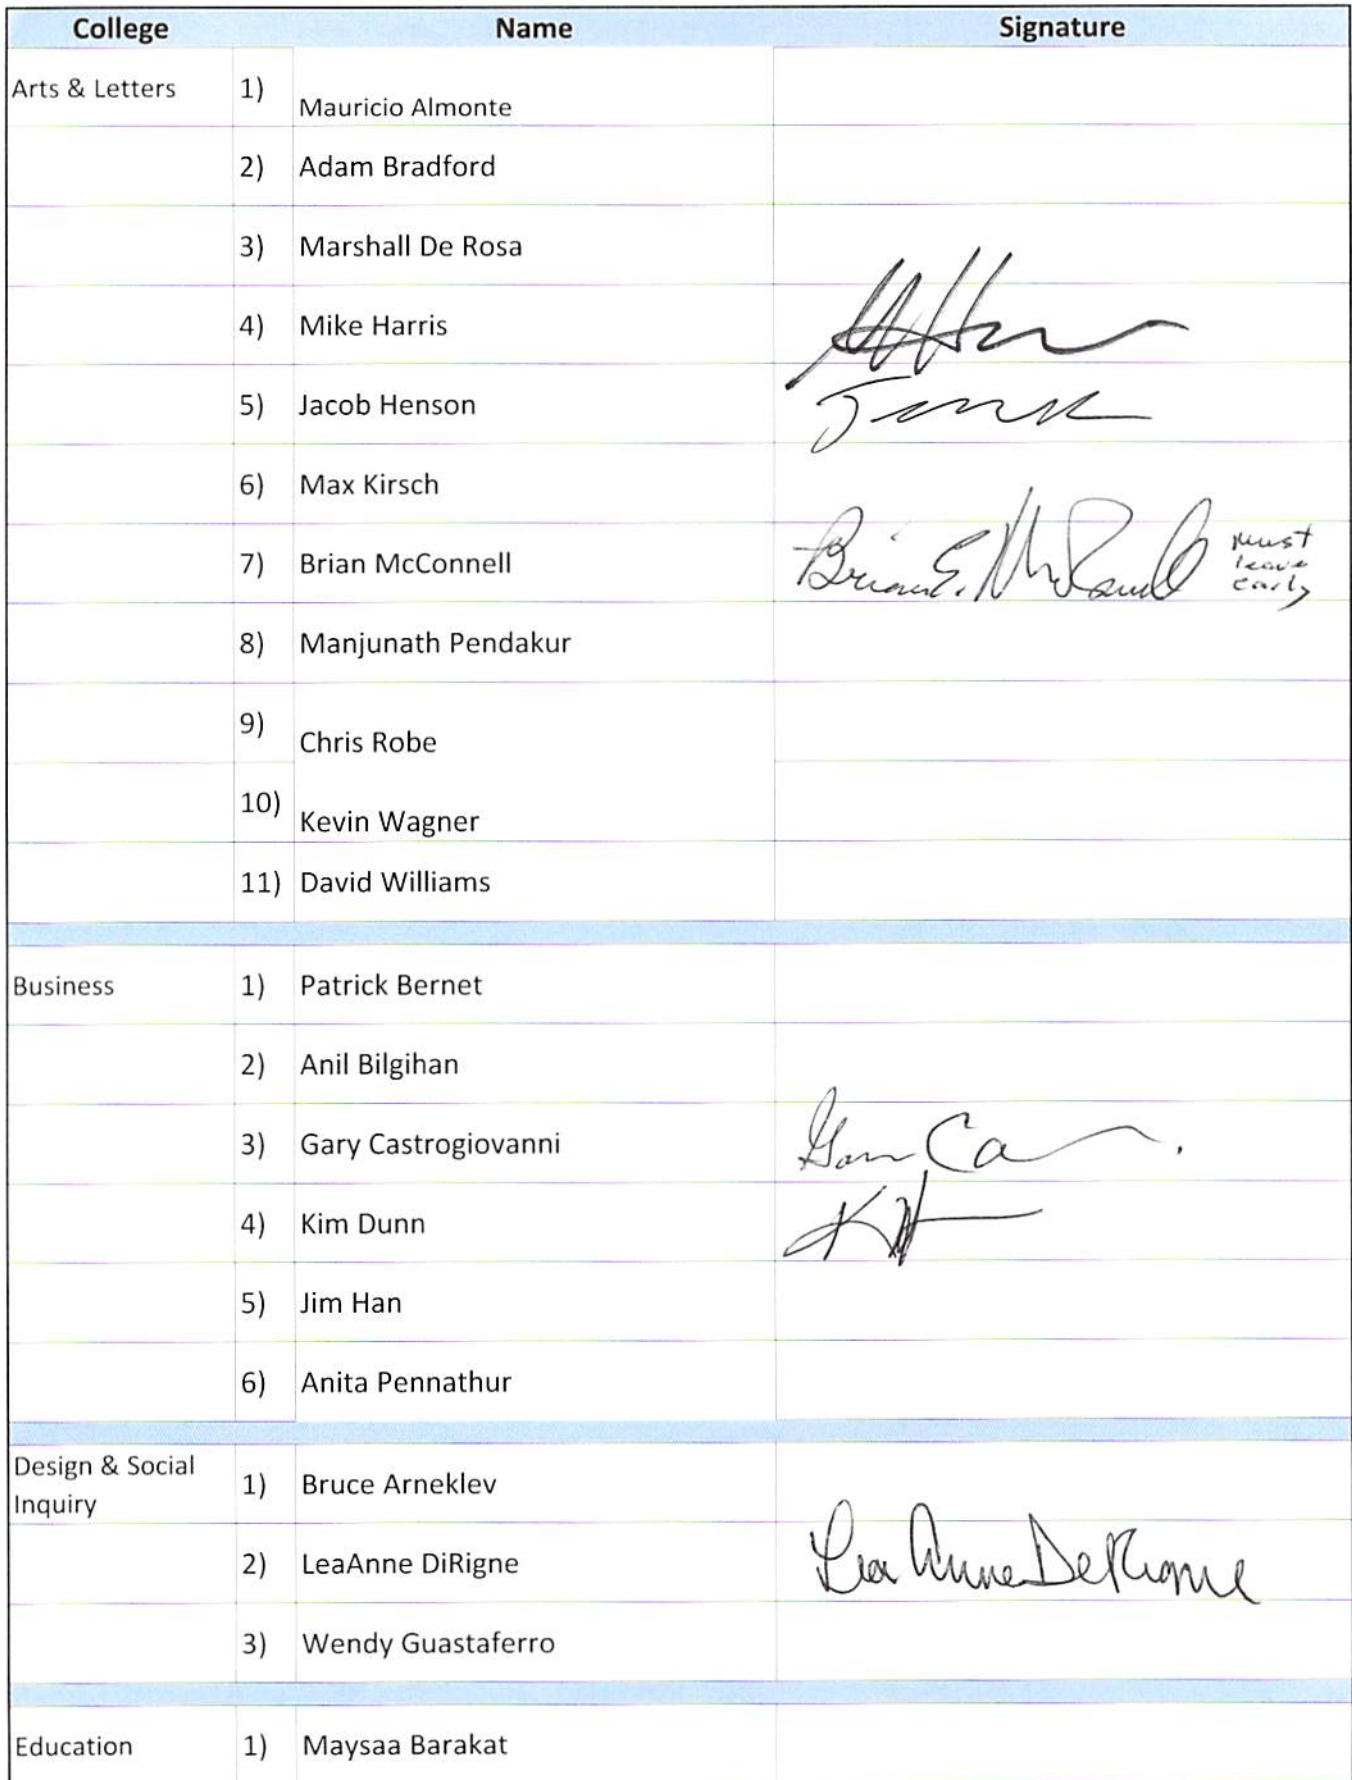 College Name Signature
Arts & Letters 1) Mauricio Almonte
2) Adam Bradford
3) Marshall De Rosa
4) Mike Harris
5) Jacob Henson
6) Max Kirsch
7) Brian McConnell Brian E. McConnell must
leave
early
8) Manjunath Pendakur
9) Chris Robe
10) Kevin Wagner
11) David Williams
Business 1) Patrick Bernet
2) Anil Bilgihan
3) Gary Castrogiovanni
4) Kim Dunn
5) Jim Han
6) Anita Pennathur
Design & Social
Inquiry 1) Bruce Arneklev
2) LeaAnne DiRigne LeaAnne DeRigne
3) Wendy Guastaferro
Education 1) Maysaa Barakat